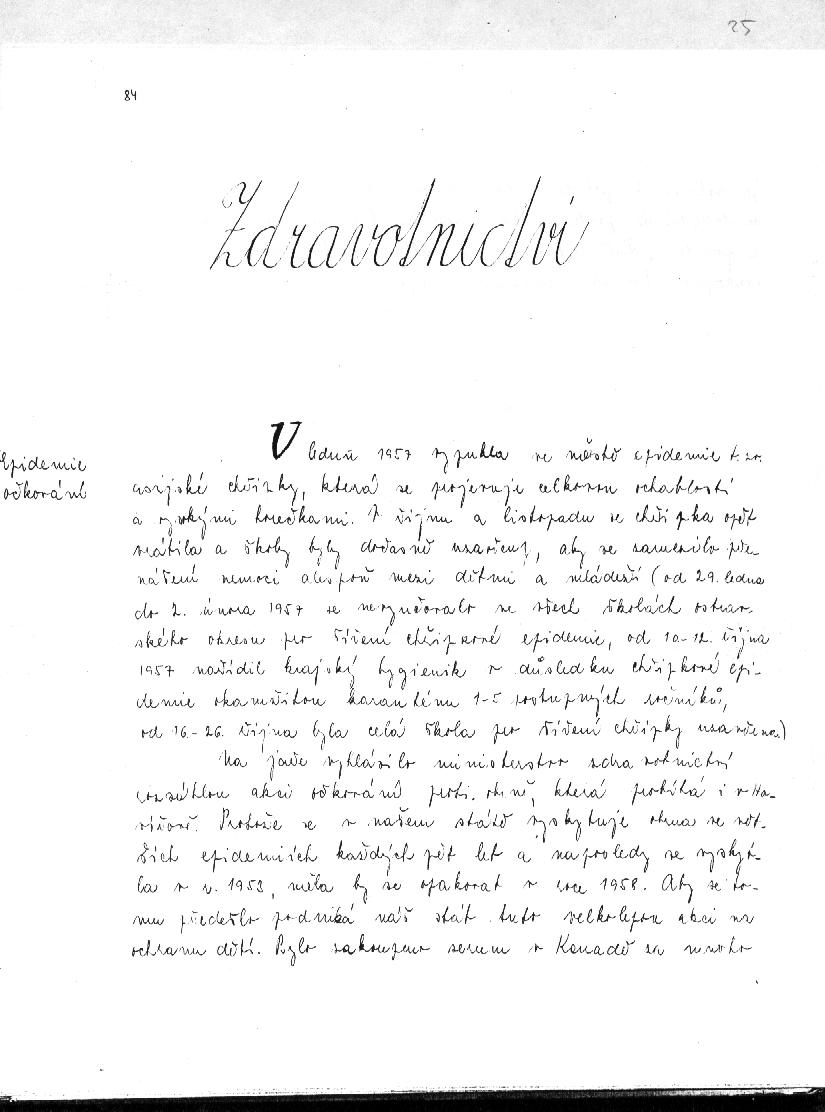 25
84
Zdravotnictví
Epidemie
očkování
V lednu 1957 vypukla ve městě epidemie t. zv.
asijské chřipky, která se projevuje celkovou ochablostí
a vysokými horečkami. V říjnu a listopadu se chřipka opět
vrátila a školy byly dočasně uzavřeny, aby se zamezilo pře-
nášení nemoci alespoň mezi dětmi a mládeží (od 29. ledna
do 2. února 1957 se nevyučovalo ve všech školách ostrav-
ského okresu pro šíření chřipkové epidemie, od 10.-12. října
1957 nařídil krajský hygienik v důsledku chřipkové epi-
demie okamžitou karanténu 1-5 postupných ročníků,
od 16.-26. října byla celá škola pro šíření chřipky uzavřena.)
Na jaře vyhlásilo ministerstvo zdravotnictví
rozsáhlou akci očkování proti obrně, která probíhá i v Ha-
vířově. Protože se v našem státě vyskytuje obrna ve vět-
ších epidemiích každých pět let a naposledy se vyskyt-
la v r. 1953, měla by se opakovat v roce 1958. Aby se to-
mu předešlo podniká náš stát tuto velkolepou akci na
ochranu dětí. Bylo zakoupeno serum v Kanadě za mnoho